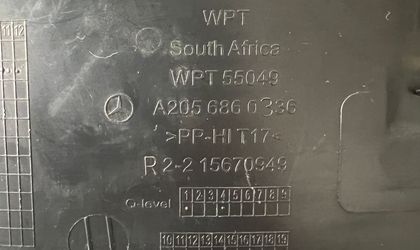 WPT
South Africa
WPT 55049
A205 686 0336
>PP-HI T17<
R 2-2 15670949
Q-level 1 2 3 4 5 6 7 8 9
11 12
10 11 12 13 14 15 16 17 18 19